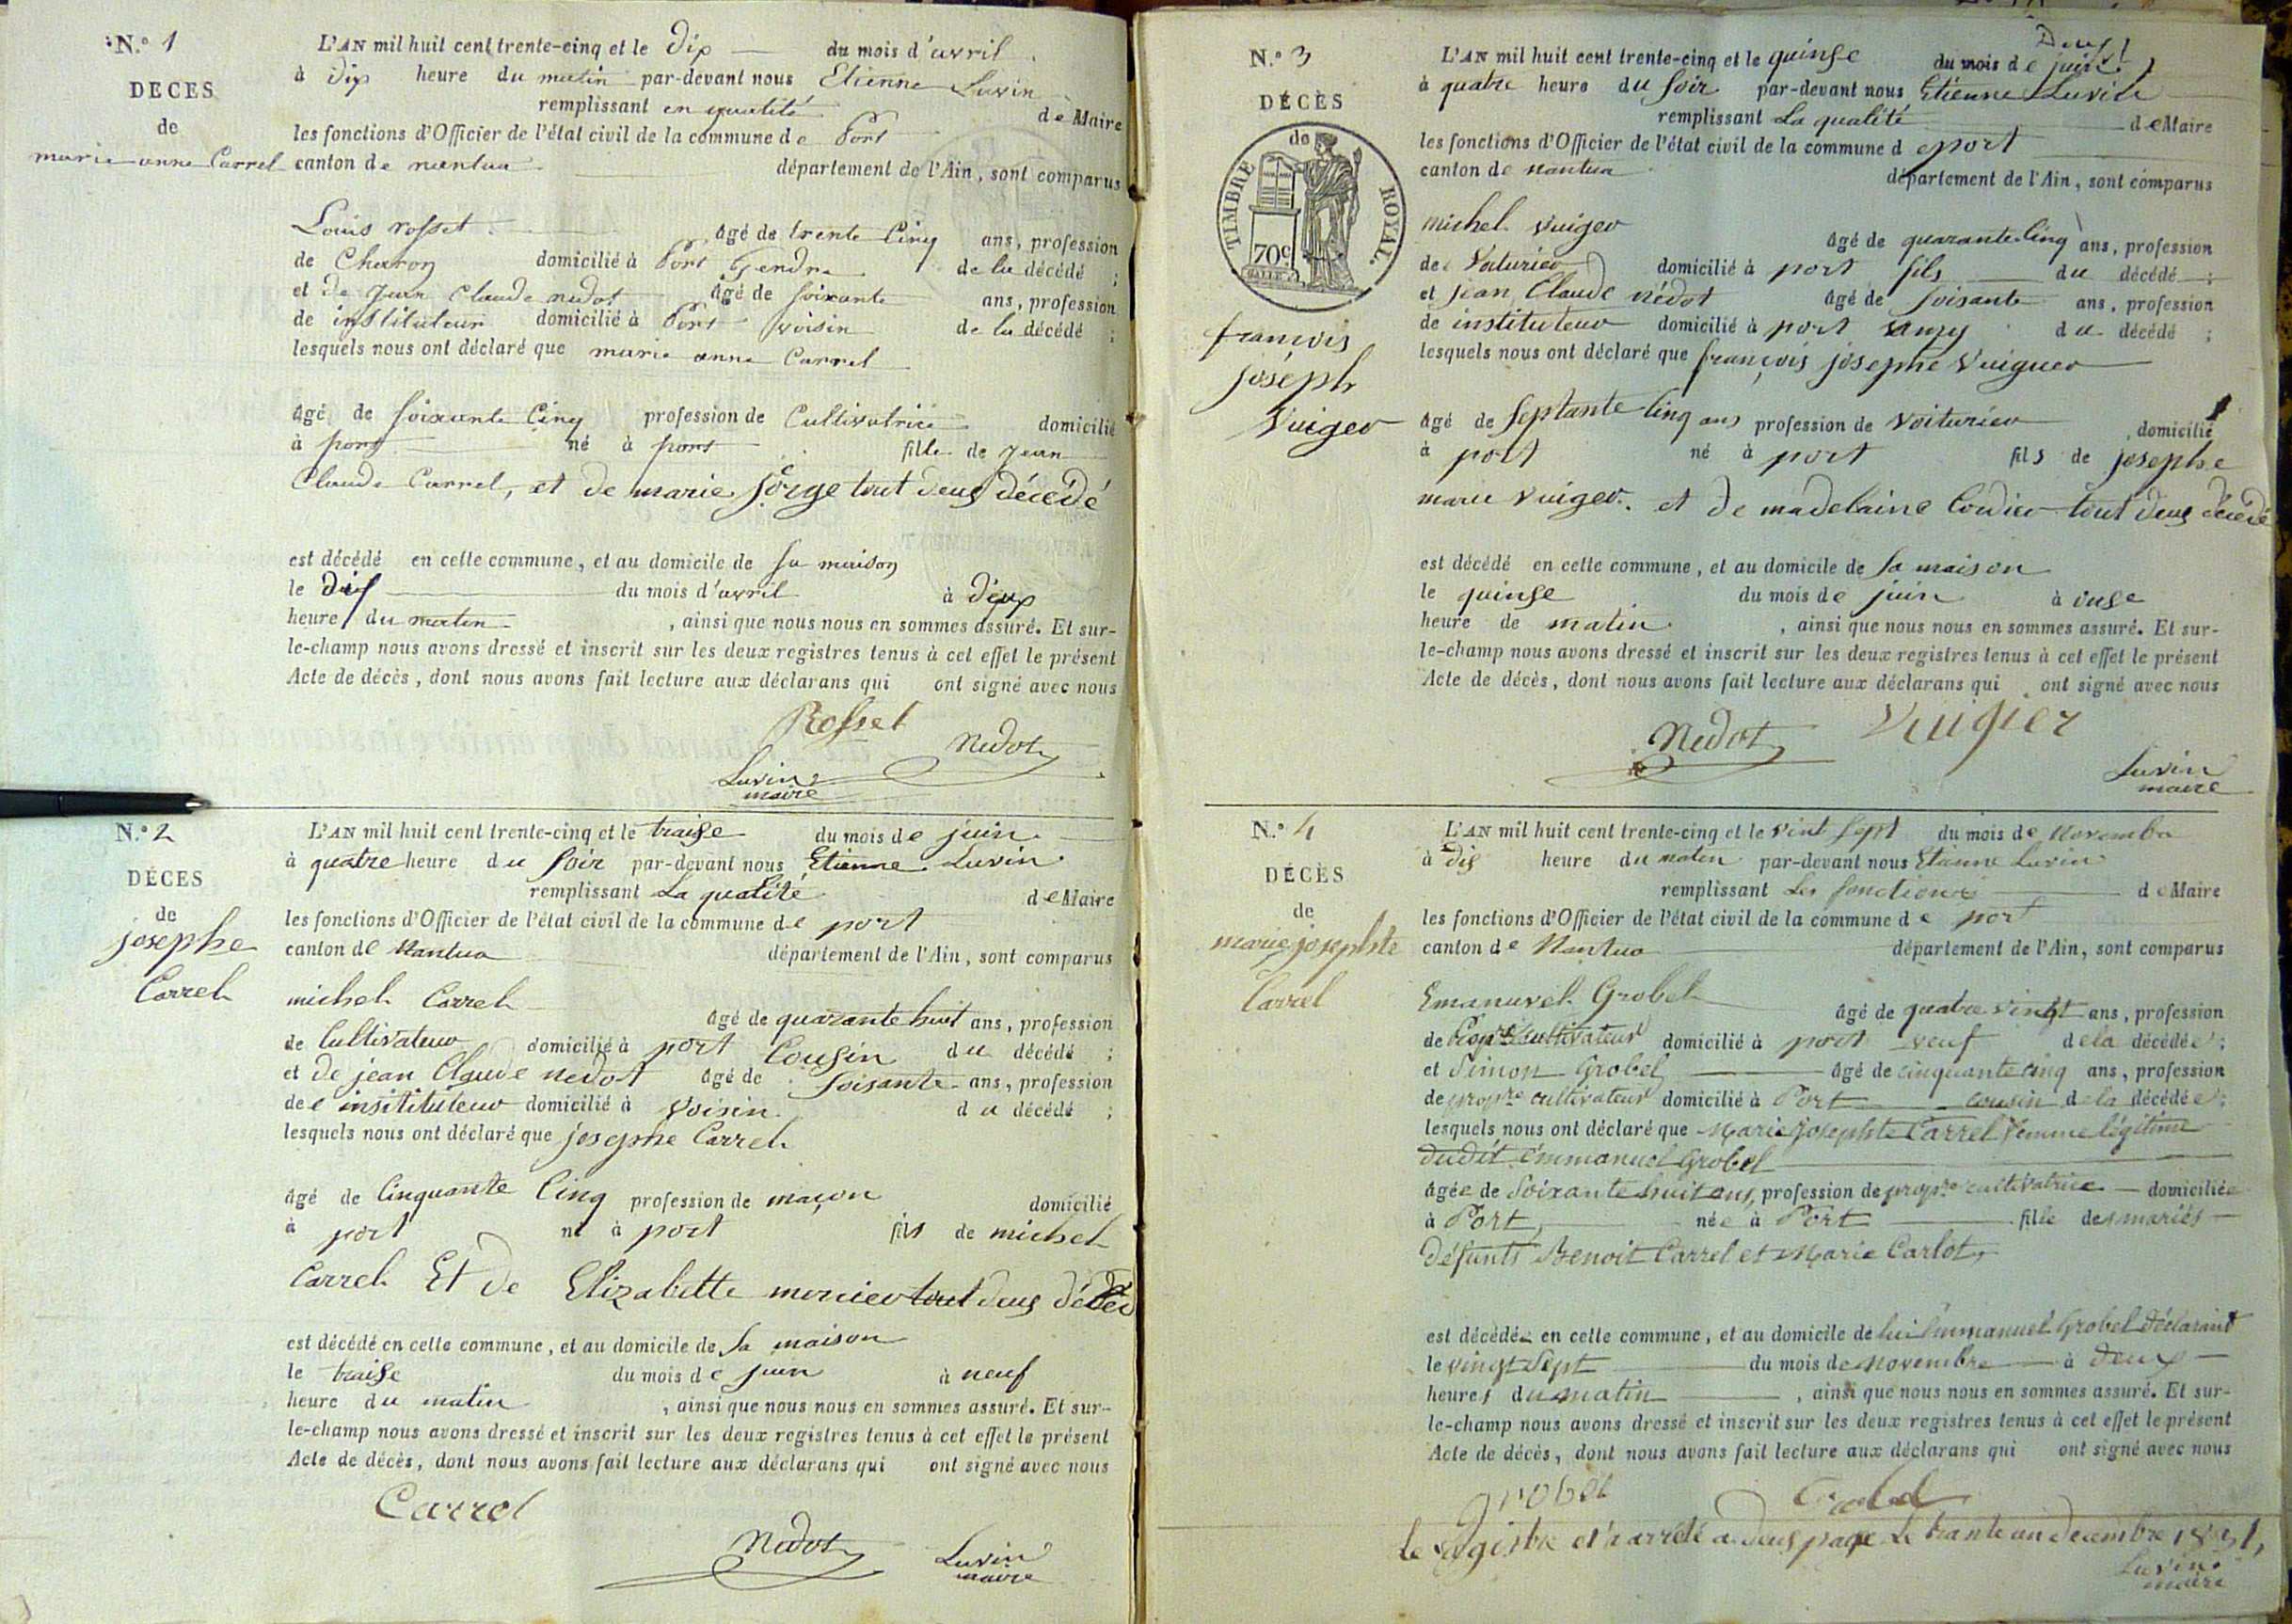 N.° 1
DECES
de
marie anne Carrel
L'AN mil huit cent trente-cinq et le dix du mois d'avril
à dix heure du matin par-devant nous Etienne Luvin
remplissant en qualité de Maire
les fonctions d'Officier de l'état civil de la commune de Port
canton de nantua département de l'Ain, sont comparus
Louis rosset âgé de trente Cinq ans, profession
de Charon domicilié à Port Gendre de la décédé ;
et de Jean Claude nedot âgé de soixante ans, profession
de instituteur domicilié à Port voisin de la décédé ;
lesquels nous ont déclaré que marie anne Carrel
âgé de soixante Cinq profession de Cultivatrice domicilié
à port né à port fille de Jean
Claude Carrel, et de marie jorge tout deux décédé
est décédé en cette commune, et au domicile de sa maison
le dix du mois d'avril à deux
heure du matin , ainsi que nous nous en sommes assuré. Et sur-
le-champ nous avons dressé et inscrit sur les deux registres tenus à cet effet le présent
Acte de décès, dont nous avons fait lecture aux déclarans qui ont signé avec nous
Rosset
Nedot
Luvin
maire
N.° 2
DÉCES
de
josephe
Carrel
L'AN mil huit cent trente-cinq et le traise du mois de juin
à quatre heure du soir par-devant nous Etienne Luvin
remplissant La qualité de Maire
les fonctions d'Officier de l'état civil de la commune de port
canton de Nantua département de l'Ain, sont comparus
michel Carrel âgé de quarante huit ans, profession
de Cultivateur domicilié à port Cousin du décédé ;
et de jean Claude nedot âgé de soisante ans, profession
de e insitituteur domicilié à voisin du décédé ;
lesquels nous ont déclaré que josephe Carrel
âgé de Cinquante Cinq profession de maçon domicilié
à port né à port fils de michel
Carrel Et de Elizabette monier tout deux décéd
est décédé en cette commune, et au domicile de sa maison
le traise du mois de juin à neuf
heure du matin , ainsi que nous nous en sommes assuré. Et sur-
le-champ nous avons dressé et inscrit sur les deux registres tenus à cet effet le présent
Acte de décès, dont nous avons fait lecture aux déclarans qui ont signé avec nous
Carrel
Nedot
Luvin
maire
N.° 3
DÉCÈS
de
TIMBRE ROYAL.
70c
françois
joseph
Vuiger
L'AN mil huit cent trente-cinq et le quinse du mois de juin
à quatre heure du soir par-devant nous Etienne Luvin
remplissant La qualité de Maire
les fonctions d'Officier de l'état civil de la commune d eport
canton de nantua département de l'Ain, sont comparus
michel vuiger âgé de quarante Cinq ans, profession
de Voiturier domicilié à port fils du décédé ;
et jean Claude nédot âgé de soisante ans, profession
de instituteur domicilié à port amy du décédé ;
lesquels nous ont déclaré que françois josephe Vuiguer
âgé de Septante Cinq ans profession de Voiturier domicilié
à port né à port fils de josephe
marie vuiger. et de madelaine Cordier tout deux décédé
est décédé en cette commune, et au domicile de sa maison
le quinse du mois de juin à onse
heure de matin , ainsi que nous nous en sommes assuré. Et sur-
le-champ nous avons dressé et inscrit sur les deux registres tenus à cet effet le présent
Acte de décès, dont nous avons fait lecture aux déclarans qui ont signé avec nous
Nedot
Vuigier
Luvin
maire
N.° 4
DÉCÈS
de
marie josephte
Carrel
L'AN mil huit cent trente-cinq et le vint sept du mois de Novembre
à dix heure du matin par-devant nous Etienne Luvin
remplissant Les fonctions de Maire
les fonctions d'Officier de l'état civil de la commune de port
canton de Nantua département de l'Ain, sont comparus
Emanuvel Grobel âgé de quatre vingt ans, profession
de Propre cultivateur domicilié à port veuf de la décédée ;
et Simon Grobel âgé de cinquante cinq ans, profession
de propre cultivateur domicilié à Port cousin de la décédée ;
lesquels nous ont déclaré que Marie Josephte Carrel femme légitime
dudit Emmanuel Grobel
âgée de Soixante huit ans, profession de propre cultivatrice domiciliée
à Port née à Port fille des mariés
défunts Benoit Carrel et Marie Carlot,
est décédée en cette commune, et au domicile de lui Emmanuel Grobel déclarant
le vingt Sept du mois de Novembre à deux
heures du matin , ainsi que nous nous en sommes assuré. Et sur-
le-champ nous avons dressé et inscrit sur les deux registres tenus à cet effet le présent
Acte de décès, dont nous avons fait lecture aux déclarans qui ont signé avec nous
grobel
le registre et arrété a deux page Le trante un decembre
Luvin
maire